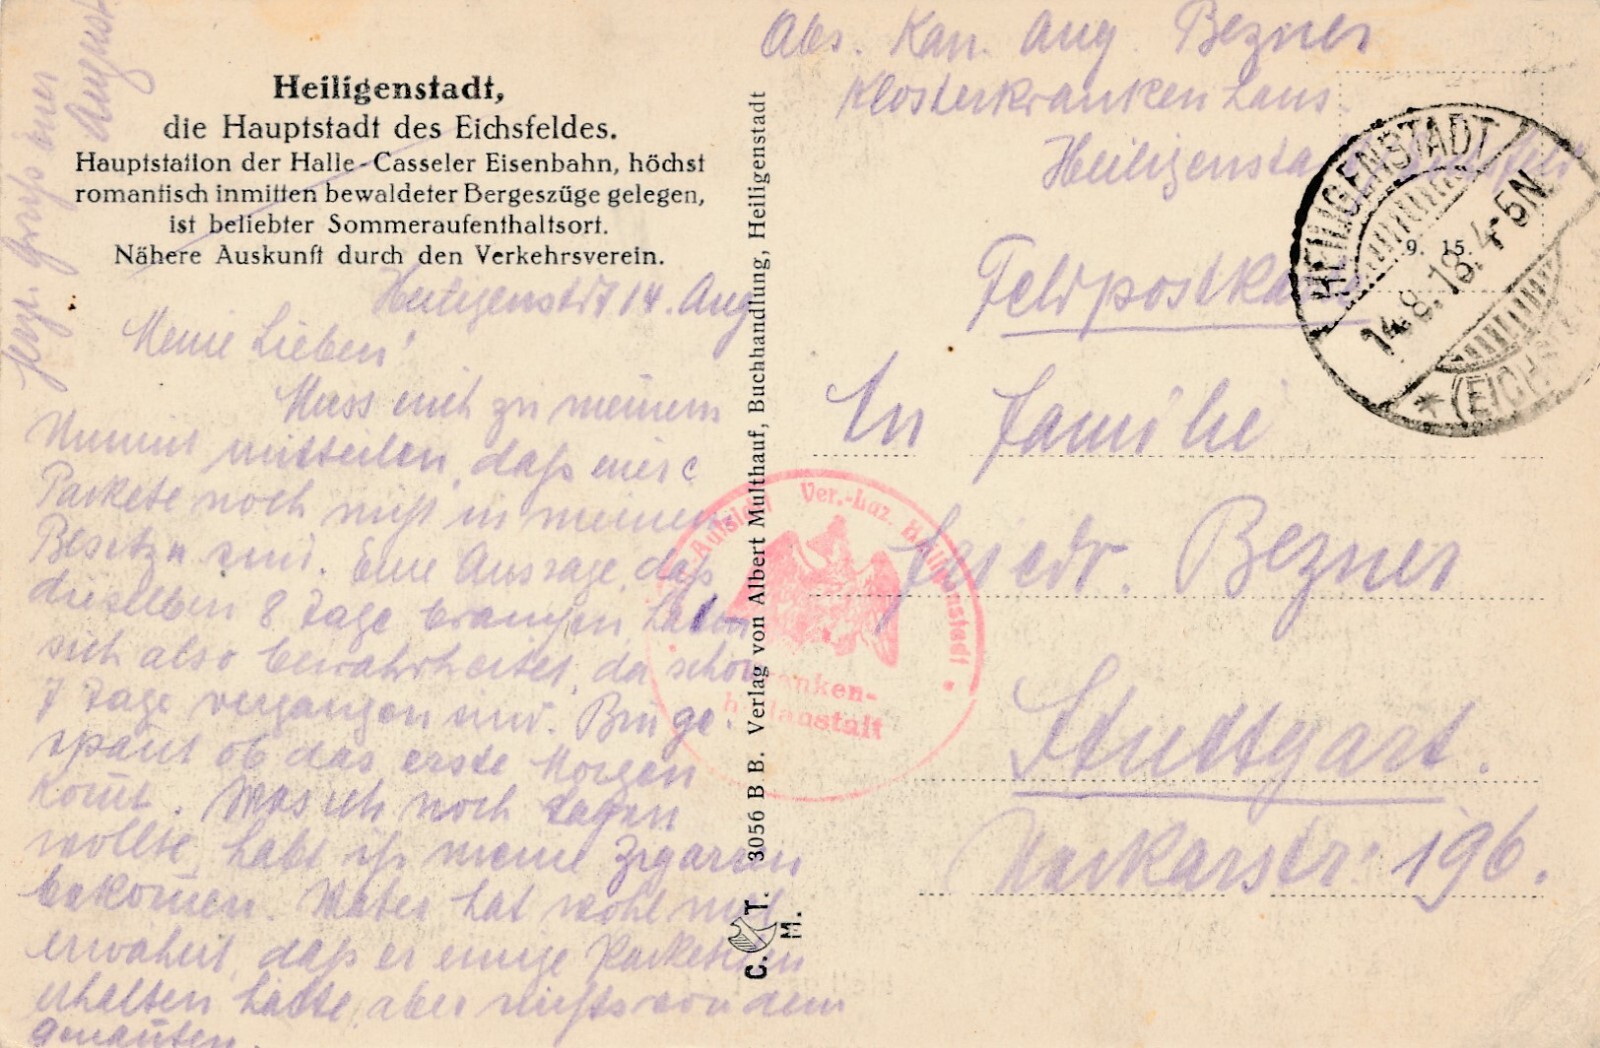 Heiligenstadt,
die Hauptstadt des Eichsfeldes.
Hauptstation der Halle-Casseler Eisenbahn, höchst
romantisch inmitten bewaldeter Bergeszüge gelegen,
ist beliebter Sommeraufenthaltsort.
Nähere Auskunft durch den Verkehrsverein.
Heiligenstdt 14. Aug
Meine Lieben!
Muss euch zu meinem
Unmut mitteilen, daß eure
Packete noch nicht in meinem
Besitze sind. Eine Aussage, daß
dieselben 8 Tage brauchen haben
sich also bewahrheitet, da schon
7 Tage vergangen sind. Bin ge-
spant ob das erste Morgen
komt. Was ich noch sagen
wollte, habt ihr meine Zigaren
bekomen. Vater hat wohl mal
erwähnt, daß er einige Packetchen
erhalten hätte, aber nichts von dem
genauten
herzl. Gruß euer
August
3056 B B. Verlag von Albert Multhauf, Buchhandlung, Heiligenstadt
C. T.
M.
Abs. Kan. Aug. Bezner
Klosterkrankenhaus
Heiligenstadt
Feldpostkarte
HEILIGENSTADT
14.8.18. 4-5N
* (EICHSF
9. 15.
An Familie
Friedr. Bezner
Stuttgart.
Neckarstr. 196.
Ver.-Laz. Heiligenstadt
Kranken-
heilanstalt